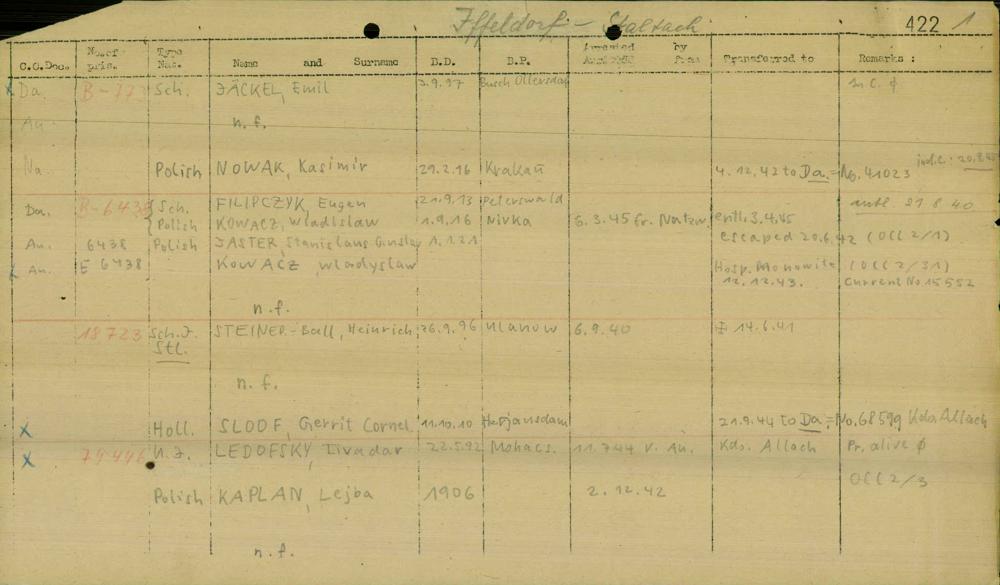 Iffeldorf - Staltach 422 1
C.C.Doc. No. of pris. Type Nat. Name and Surname B.D. B.P. Arrested by Transferred to Remarks :
Da. Sch. JÄCKEL, Emil 3.9.97 Busch Ullersdorf In C. φ
Au. n.f.
Na Polish NOWAK, Kasimir 29.2.16 Krakau 4.12.42 to Da. = No. 41023
Da. B-6438 Sch. FILIPCZYK, Eugen 21.9.13 Peterswald
Polish KOWACZ, Wladislaw 1.9.16 Nivka 6.3.45 fr. Natzw. entl. 3.4.45
Au. 6438 Polish JASTER, Stanislaus 1.1.21 escaped 20.6.42 (OCC 2/1)
Au. E 6438 KOWACZ Wladyslaw Hosp. Monowitz (OCC 2/31)
12.12.43. Current No 15552
n.f.
18723 Sch.J. STEINER-Ball, Heinrich, 26.9.96 Ulanow 6.9.40 14.6.41
Stl.
n.f.
x Holl. SLOOF, Gerrit Cornel. 11.10.10 21.9.44 to Da. = No. 68599 Kdo. Allach
x U.J. LEDOFSKY, Tivadar 22.5.92 Mohacs. 11.7.44 v. Au. Kdo. Allach Pr. alive φ
OCC 2/3
Polish KAPLAN, Lejba 1906 2.12.42
n.f.